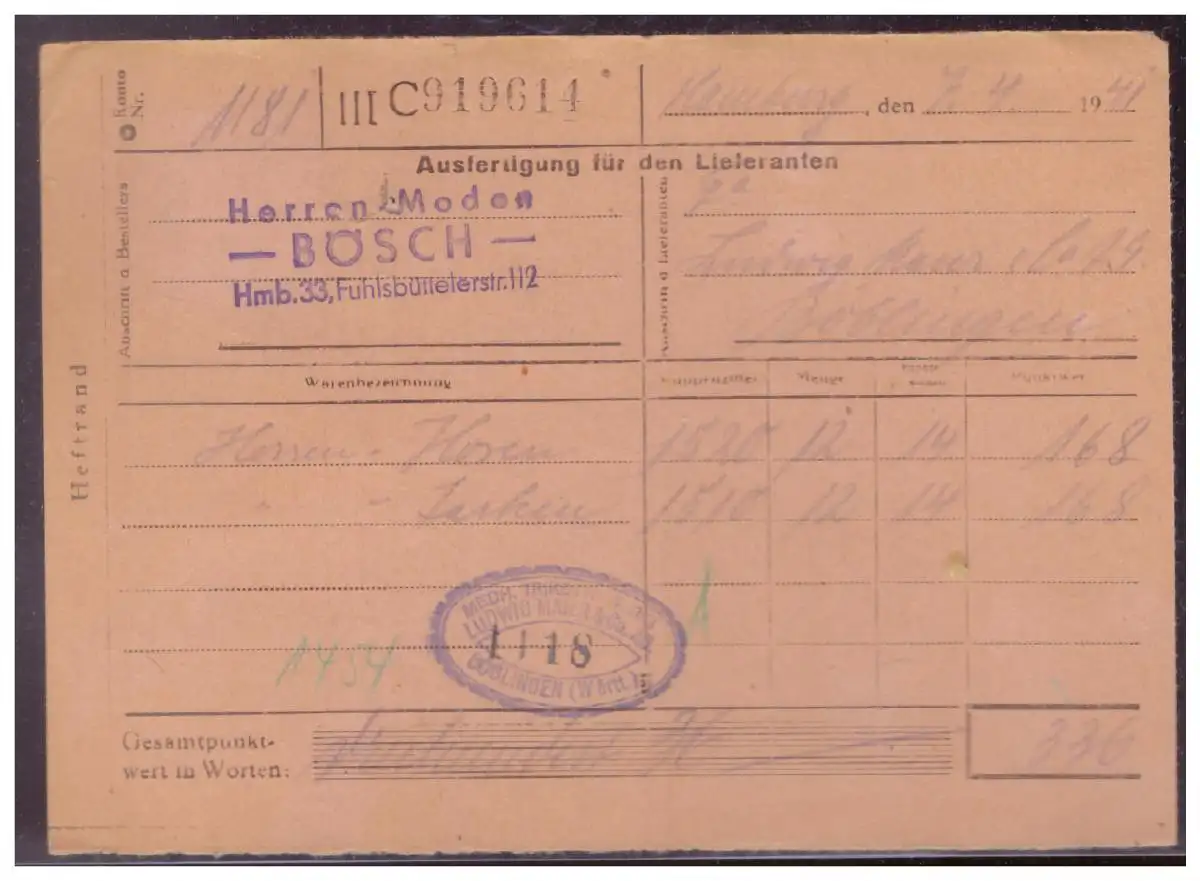 Konto Nr. 1181 III C919614 Hamburg, den 7. 4. 1941
Ausfertigung für den Lieferanten
Anschrift d Bestellers
Herren-Moden
— BÖSCH —
Hmb. 33, Fuhlsbüttelerstr. 112
Anschrift d Lieferanten
Fa
Ludwig Maier
Böblingen
Heftrand
Warenbezeichnung Menge Punktwert
Herren-Hosen 1520 12 14 168
" - Jacken 1510 12 14 168
MECH. TRIKOT
LUDWIG MAIER & Co.
1118
BÖBLINGEN (Württ.)
1454
Gesamtpunkt-
wert in Worten: 336